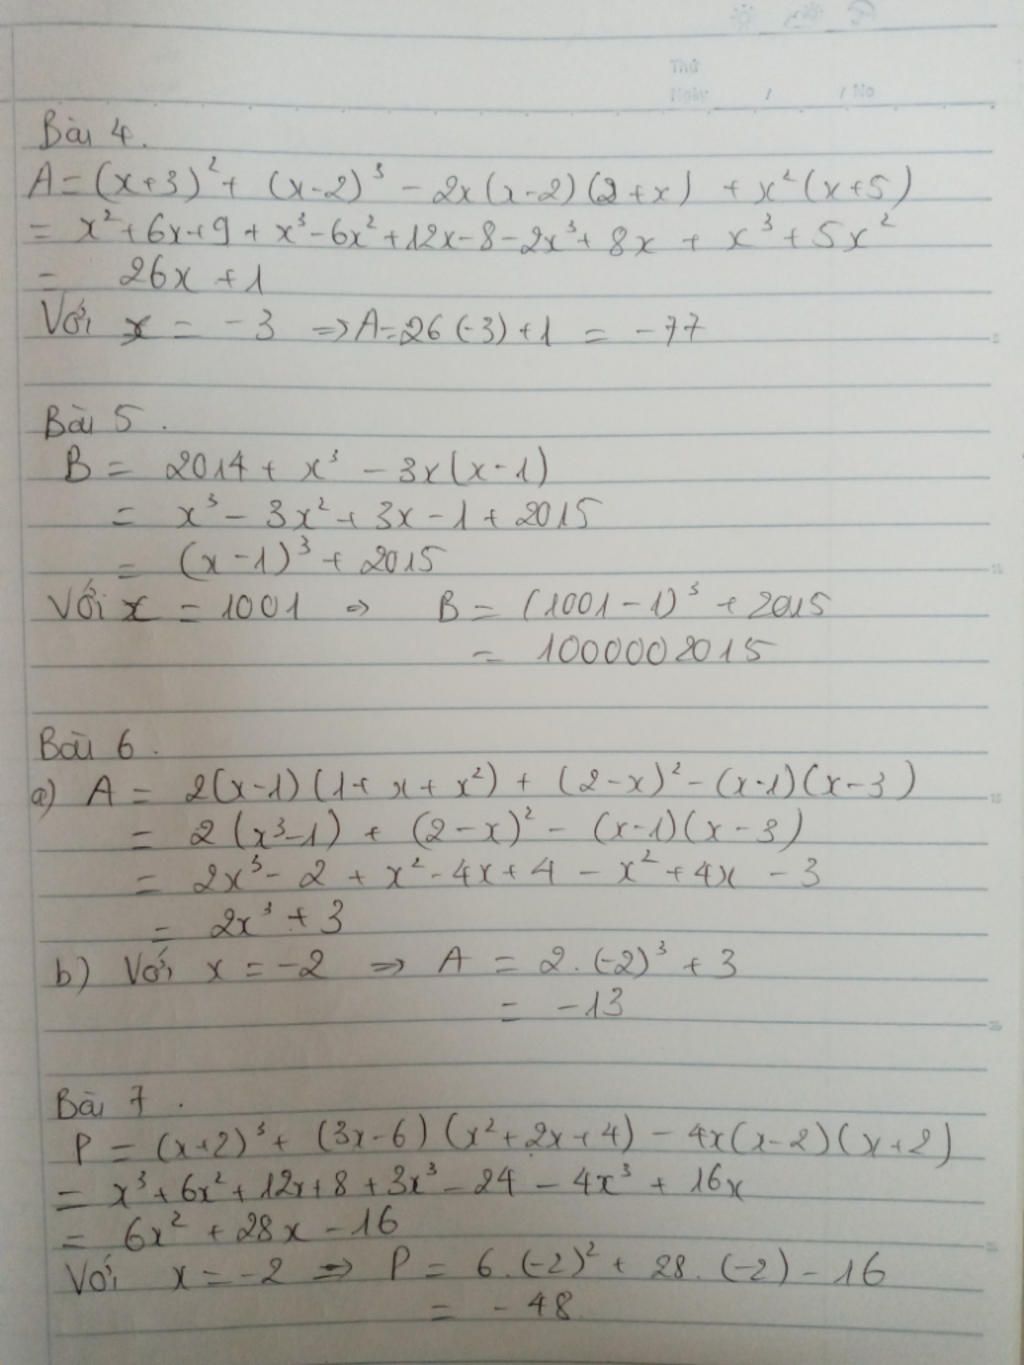 Thứ
Ngày / / No
Bài 4.
A = (x+3)² + (x-2)³ - 2x(x-2)(2+x) + x²(x+5)
= x² + 6x + 9 + x³ - 6x² + 12x - 8 - 2x³ + 8x + x³ + 5x²
= 26x + 1
Với x = -3 ⇒ A = 26(-3) + 1 = -77
Bài 5.
B = 2014 + x³ - 3x(x-1)
= x³ - 3x² + 3x - 1 + 2015
= (x-1)³ + 2015
Với x = 1001 ⇒ B = (1001-1)³ + 2015
= 1000002015
Bài 6.
a) A = 2(x-1)(1+x+x²) + (2-x)² - (x-1)(x-3)
= 2(x³-1) + (2-x)² - (x-1)(x-3)
= 2x³ - 2 + x² - 4x + 4 - x² + 4x - 3
= 2x³ + 3
b) Với x = -2 ⇒ A = 2.(-2)³ + 3
= -13
Bài 7.
P = (x+2)³ + (3x-6)(x²+2x+4) - 4x(x-2)(x+2)
= x³ + 6x² + 12x + 8 + 3x³ - 24 - 4x³ + 16x
= 6x² + 28x - 16
Với x = -2 ⇒ P = 6.(-2)² + 28.(-2) - 16
= -48